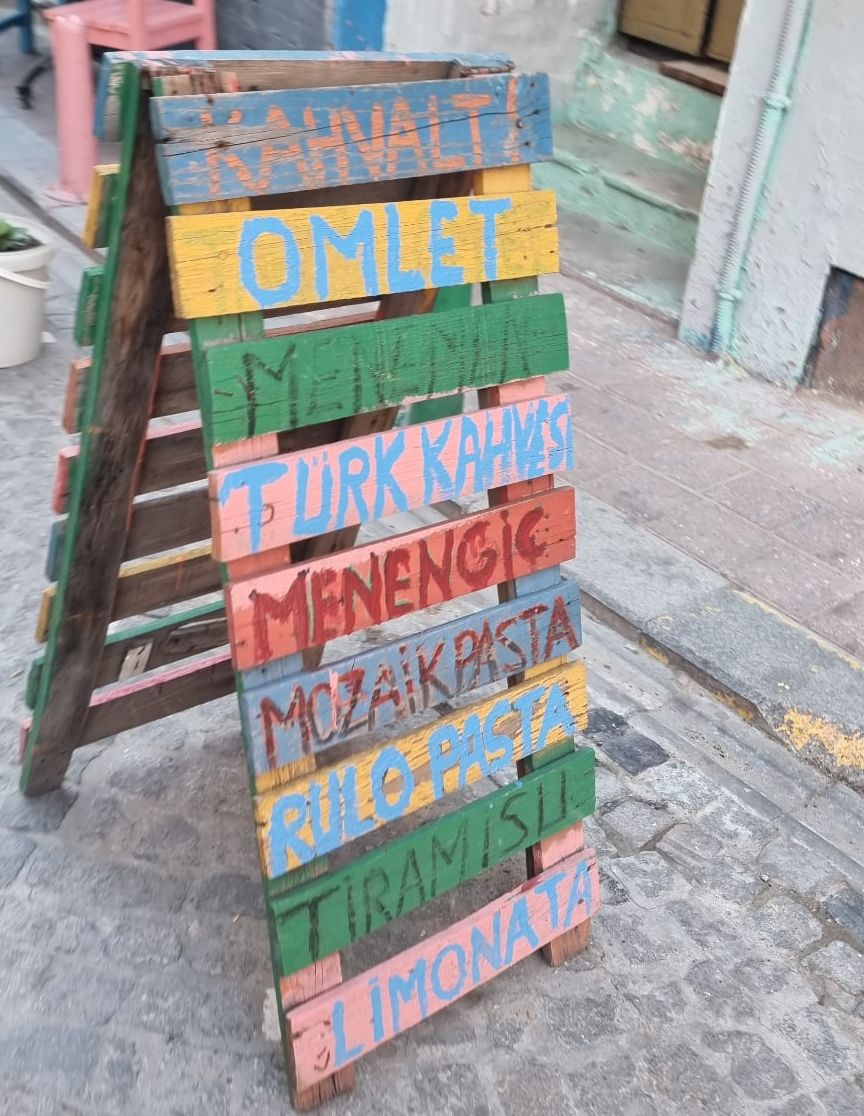 KAHVALTI
OMLET
MENEMEN
TÜRK KAHVESİ
MENENGİÇ
MOZAİK PASTA
RULO PASTA
TİRAMİSU
LİMONATA